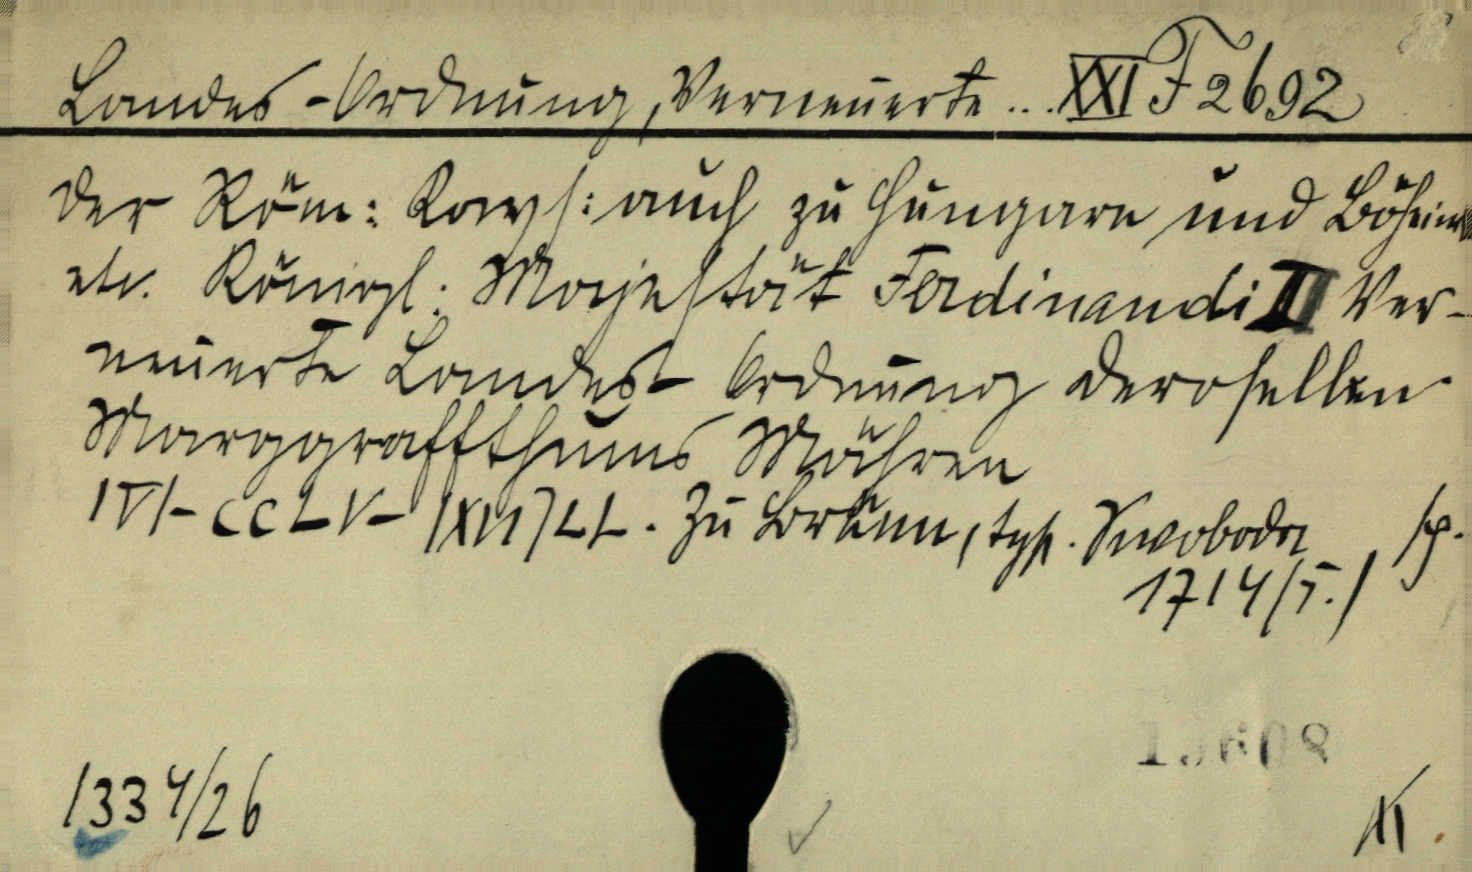 Landes-Ordnung, Verneuerte... XXI F 2692
der Röm: Kays: auch zu Hungarn und Böheim
etc. Königl: Majestät Ferdinandi II Ver-
neuerte Landes-Ordnung deroselben
Marggraffthums Mähren
IVI-CCLV-[XII]LL. Zu Brünn, typ. Swoboda
1714/5.)
1334/26